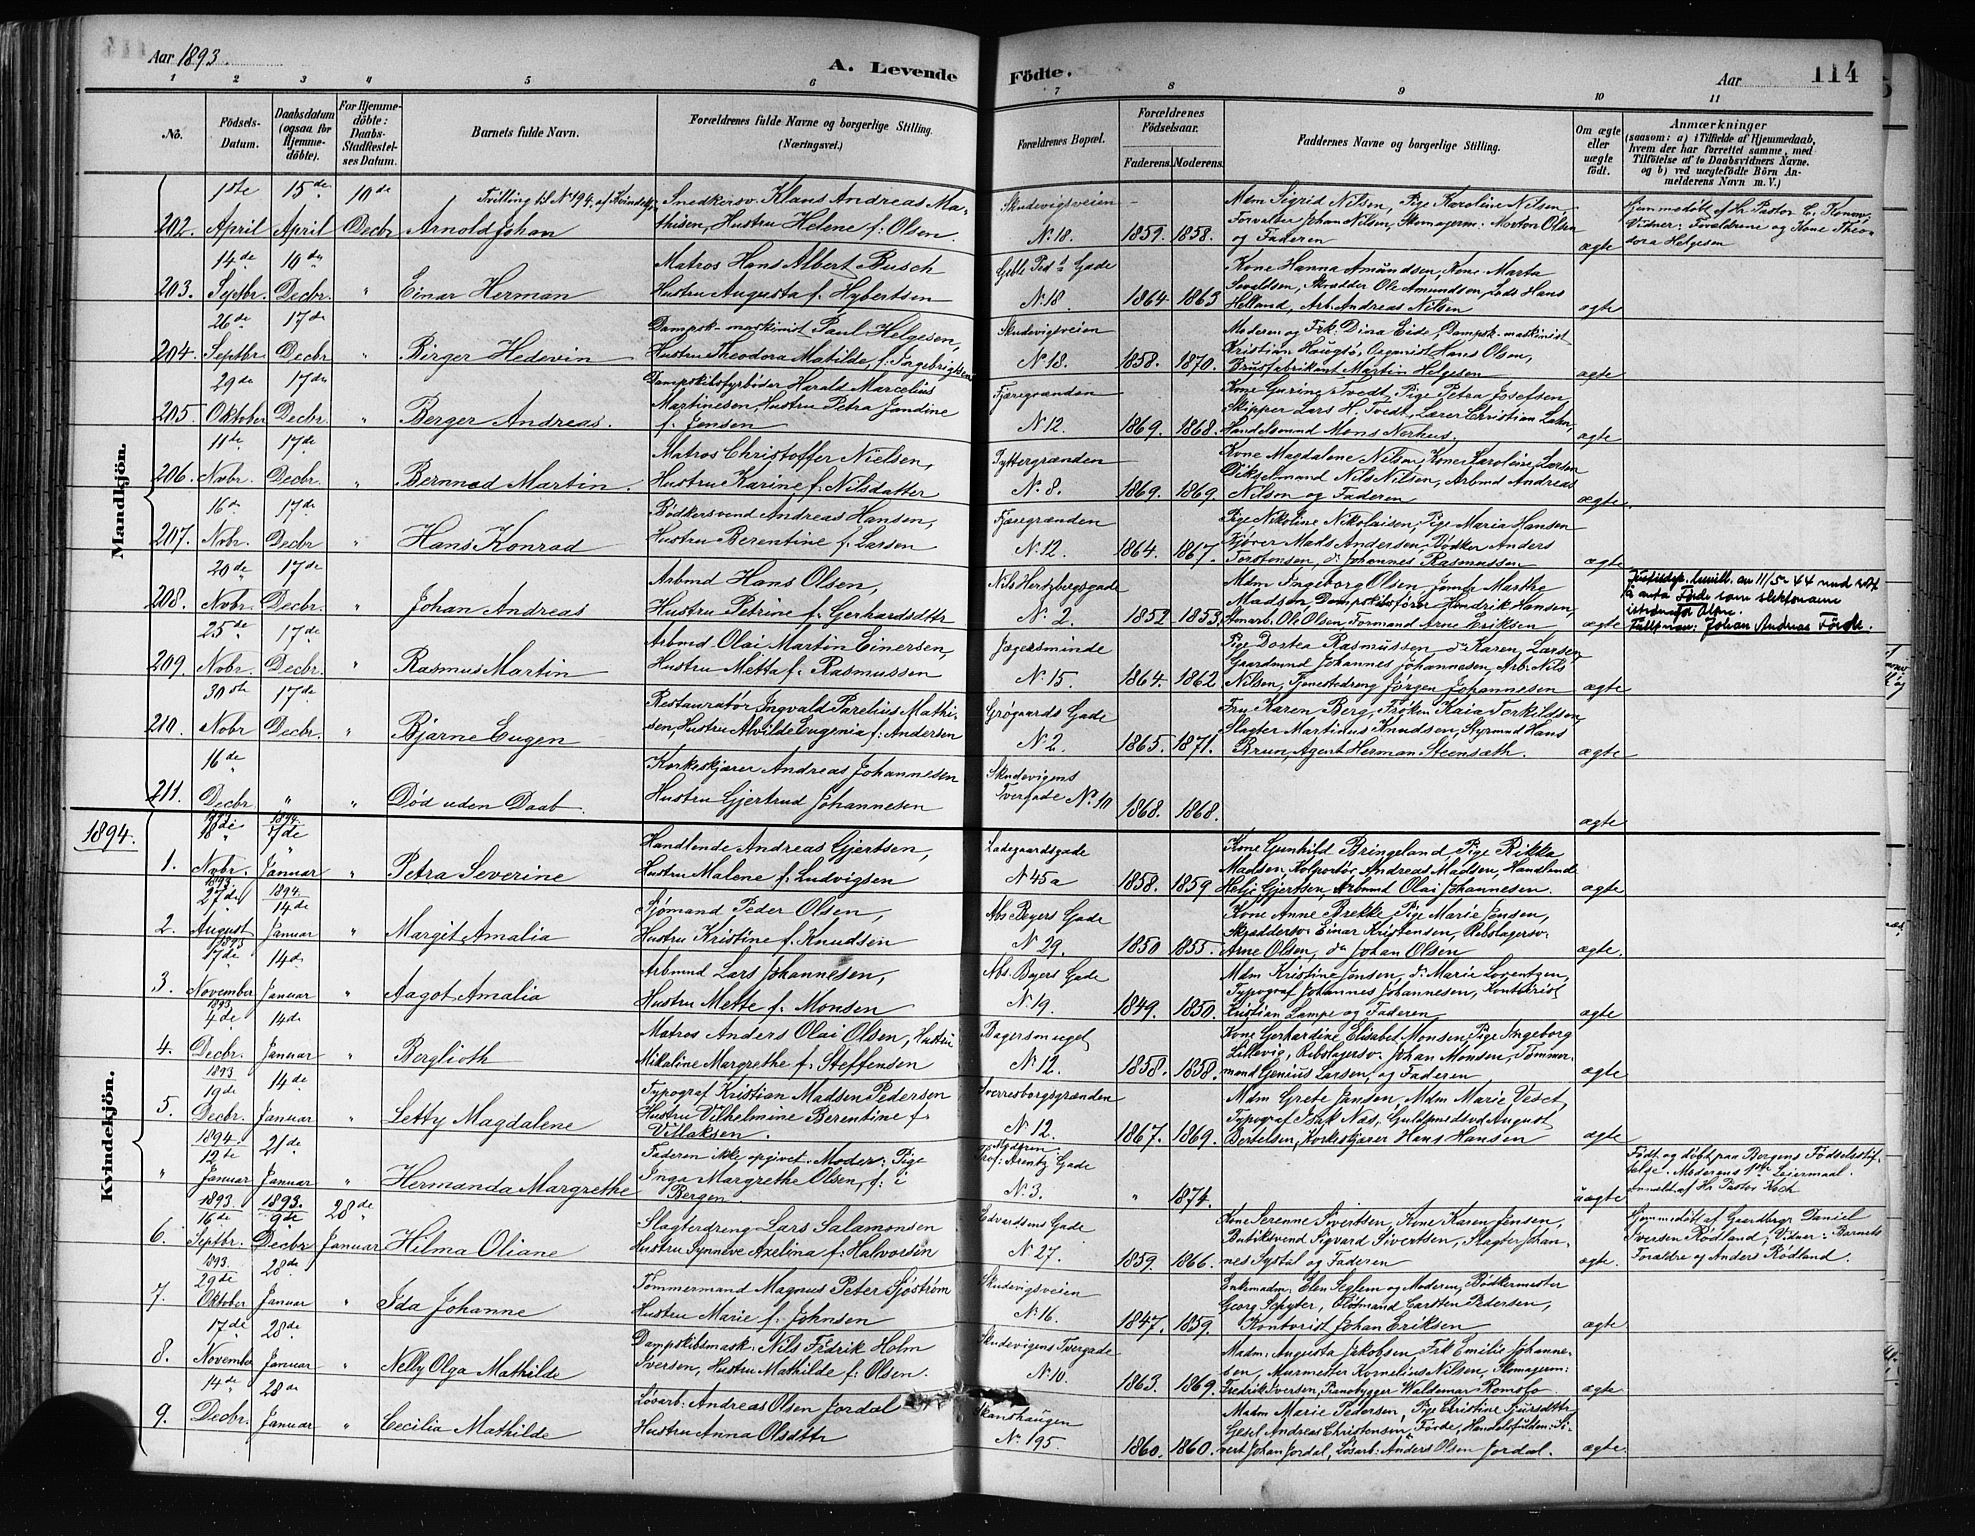 Aar 1893.
A. Levende Födte.
Aar
114
1 2 3 4 5 6 7 8 9 10 11
No.
Födsels-Datum.
Daabsdatum (ogsaa for Hjemmedöbte).
For Hjemmedöbte: Daabs-Stadfæstelses Datum.
Barnets fulde Navn.
Forældrenes fulde Navne og borgerlige Stilling.
(Næringsvei.)
Forældrenes Bopæl.
Forældrenes Födselsaar.
Faderens. Moderens.
Faddernes Navne og borgerlige Stilling.
Om ægte eller uægte födt.
Anmærkninger
(saasom: a) i Tilfælde af Hjemmedaab,
hvem der har forrettet samme, med
Tilföielse af to Daabsvidners Navne.
og b) ved uægtefödte Börn An-
melderens Navn m. V.)
Mandkjön.
1ste 15de 10de
202. April April Decbr Arnold Johan
Tvilling til No 194 af Kvindekjøn
Snedkersv. Klaus Andreas Ma-
thisen, Hustru Helene f. Olsen.
Skudevigsveien
No. 18.
1859. 1858.
Mdm Sigrid Nilsen, Pige Karoline Nilsen
Forvalter Johan Nilsen, Skomagerm. Morten Olsen
og Faderen
ægte
Hjemmedøbt af Hr Pastor C. Konow.
Vidner: Forældrene og Kone Theo-
dora Helgesen
14de 10de
203. Septbr. Decbr. " Einar Herman
Matros Hans Albert Busch
Hustru Augusta f. Hybertsen
Gade
No. 18
1864 1863
Kone Hanna Amundsen, Kone Marta
Sevaldsen, Skrædder Ole Amundsen, Lods Hans
Helland, Arb. Andreas Nilsen
ægte
26de 17de
204. Septbr Decbr " Birger Hedevin
Dampsk-maskinist Paul Helgesen,
Hustru Theodora Matilde f. Ingebrigtsen
Skudevigsveien
No. 18.
1858. 1870.
Moderen og Frk: Dina Eide, Dampsk-maskinist
Kristian Haugtø, Organist Hans Olsen,
Brusfabrikant Martin Helgesen
ægte
29de 17de
205. Oktober Decbr. " Berger Andreas.
Dampskibsfyrbøder Harald Marcelius
Martinesen, Hustru Petra Jandine
f. Jensen
Fjæregranden
No. 12.
1869. 1868.
Kone Guring Tvedt, Pige Petra Josefsen,
Skipper Lars H. Tvedt, Lærer Christian Lahn,
Handelsmnd Mons Nerhus.
ægte
11de 17de
206. Novbr. Decbr. " Bernnad Martin.
Matros Christoffer Nielsen,
Hustru Karine f. Nilsdatter
Tyttergrænden
No. 8.
1869. 1869
Kone Magdalene Nilsen, Kone Karoline Larsen
Dikselmand Nils Nilsen, Arbmd Andreas
Nilsen og Faderen
ægte.
16de 17de
207. Novbr. Decbr " Hans Konrad
Bødkersvend Andreas Hansen,
Hustru Berentine f. Larsen
Fjæregrænden
No. 12.
1864. 1867.
Pige Nikoline Nikolaisen, Pige Maria Hansen
Kjører Mads Andersen, Bødker Anders
Torstensen, do Johannes Rasmussen
ægte
20de 17de
208. Novbr. Decbr. " Johan Andreas
Arbmd Hans Olsen,
Hustru Petrine f. Gerhardsdttr
Nils Hertzbergsgade
No. 2.
1852 1853
Mdm Ingeborg Olsen, Jomfr Marthe
Madsen, Dampskibsfører Hendrik Hansen,
Smarb. Ole Olsen, Formand Arne Eriksen
ægte
Justisdep. bevill. av 11/5 44 med rett
å anta Förde som slektsnavn
istedenfor Olsen.
Fullt navn: Johan Andreas Förde.
25de 17de
209. Novbr. Decbr. " Rasmus Martin
Arbmd Olai Martin Einersen,
Hustru Metta f. Rasmussen
Jægersminde
No. 15.
1864. 1862
Pige Dortea Rasmussen, do Karen Larsen,
Gaardmnd Johannes Johannesen, Arb. Nils
Nilsen, Tjenestedreng Jørgen Johannesen
ægte
30te 17de
210. Novbr Decbr. " Bjarne Eugen
Restauratør Ingvald Parelius Mathi-
sen, Hustru Alvilde Eugenia f. Andersen
Grøgaards Gade
No. 2.
1865. 1871.
Fru Karen Berg, Frøken Kaia Torkildsen,
Slagter Martinus Knudsen, Styrmnd Hans
Brun, Agent Herman Steensæth.
ægte
16de
211. Decbr " " Død uden Daab.
Korkeskjærer Andreas Johannesen
Hustru Gjertrud Johannesen
Skudevigens
Tvergade No. 10
1868. 1868.
ægte
1894.
Kvindekjön.
1893 18de 1894. 7de
1. Novbr. Januar " Petra Severine
Handlende Andreas Gjertsen,
Hustru Malene f. Ludvigsen
Ladegaardsgade
No 45a
1858. 1859
Kone Gunhild Bringeland, Pige Rikka
Madsen, Kolportør Andreas Madsen, Handlende
Helje Gjertsen, Arbmnd Olai Johannesen.
ægte
1893 27de 1894. 14de
2. August Januar " Margit Amalia
Sjømand Peder Olsen,
Hustru Kristine f. Knudsen
Abs. Beyers Gade
No. 29.
1850 1855.
Kone Anne Brekke, Pige Marie Jensen,
Skræddersv. Einar Kristensen, Rebslagersv.
Arne Olsen, do Johan Olsen
ægte.
1893 17de 14de
3. November Januar " Aagot Amalia
Arbmnd Lars Johannesen,
Hustru Mette f. Monsen
Abs. Beyers Gade
No. 19.
1849. 1850.
Mdm Kristine Jensen, do Marie Lorentzen,
Typograf Johannes Johannesen, Kontorist
Kristian Lampe og Faderen
ægte
1893. 4de 14de
4. Decbr. Januar " Berglioth
Matros Anders Olai Olsen, Hustru
Mikaline Margrethe f. Steffensen
Bagersmuget
No. 12.
1858. 1858.
Kone Gerhardine Elisabet Monsen, Pige Ingeborg
Lillevig, Rebslagersv. Johan Monsen, Tømmer-
mand Genius Larsen, og Faderen
ægte
1893 19de 14de
5. Decbr. Januar " Letty Magdalene
Typograf Kristian Madsen Pedersen
Hustru Vilhelmine Berentine f.
Villaksen.
Sverresborgsgrænden
No. 12.
1867. 1869.
Mdm Grete Jansen, Mdm Marie Vedet,
Typograf Isak Nas, Guldsmedsvd August
Bertelsen, Korkeskjærer Hans Hansen
ægte
1894. 12te 21de
" Januar Januar " Hermanda Margrethe
Faderen ikke opgivet. Moder: Pige
Inga Margrethe Olsen, f. i
Bergen
Nygaden.
Prof. Arentz Gade
No. 3.
" 1874.
uægte
Født og døbt paa Bergens Fødselsstif-
telse. Moderens 1ste Leiermaal
anmeldt af Hr Pastor Koch
1893 16de 1893. 9de 28de
6. Septbr. Decbr Januar Hilma Oliane
Slagterdreng Lars Salamonsen
Hustru Synneve Axelina f. Halvorsen
Edvardsens Gade
No. 27.
1859. 1866.
Kone Serenne Sivertsen, Kone Karen Jensen,
Butiksvend Sigvard Sivertsen, Slagter Johan-
nes Systal og Faderen
ægte.
Hjemmedøbt af Gaardbrgr Daniel
Iversen Rødland; Vidner: Barnets
Forældre og Anders Rødland.
1893. 29de 28de
7. Oktober Januar " Ida Johanne
Tømmermand Magnus Peter Sjøstrøm
Hustru Marie f. Johnsen
Skudevigsveien
No. 16.
1847. 1859.
Enkemadm: Elen Seglem og Moderen, Bødkermester
Georg Schyter, Flødmand Carsten Pedersen,
Kontorist Johan Eriksen
ægte
17de 28de
8. November Januar " Nelly Olga Mathilde
Dampskibsmask: Nils Fredrik Holm
Iversen, Hustru Mathilde f. Olsen.
Skudevigens Tvergade
No. 10.
1863. 1869.
Madm: Augusta Jakobsen, Frk Emilie Johanne-
sen, Murmester Kornelius Nilsen, Skomagerm:
Fredrik Iversen, Pianobygger Waldemar Romsfo.
ægte
14de 28de
9. Decbr. Januar " Cecilia Mathilde
Løsarb: Andreas Olsen Jordal
Hustru Anna Olsdttr
Skanshaugen
No. 195.
1860. 1860.
Madm Marie Pedersen, Pige Christine Sjursdttr
Gesel Andreas Christensen Førde, Handelsfuldm: Si-
vert Johan Jordal, Løsarb: Anders Olsen Jordal.
ægte.